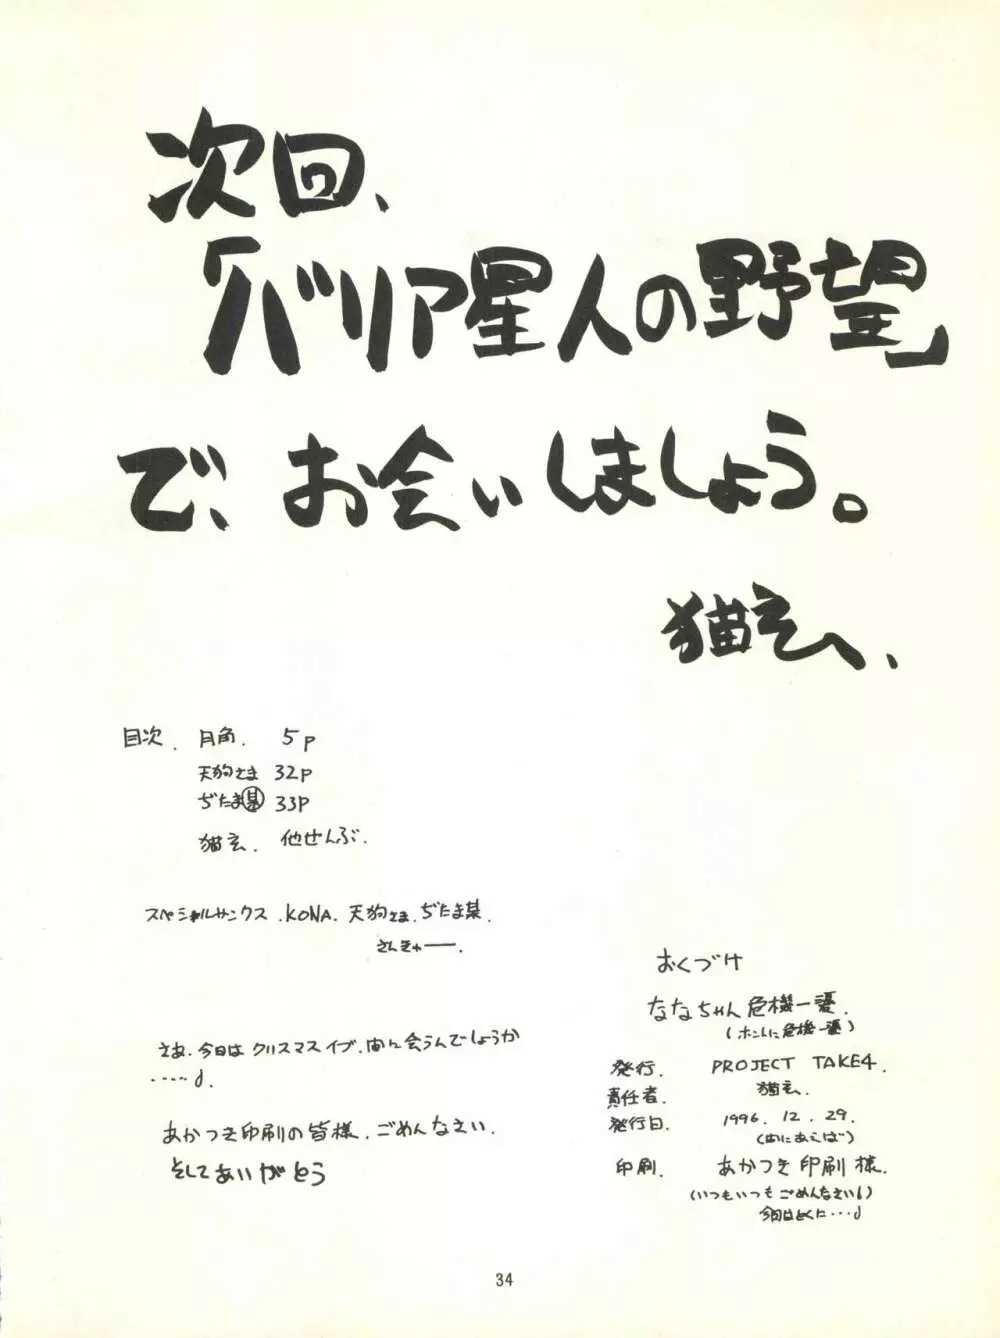 次回、
「バリア星人の野望」
で、お会いしましょう。
猫玄へ、
目次、月角、5p
天狗さま 32p
ぢたま某 33p
猫玄、他ぜんぶ、
スペシャルサンクス、KONA、天狗さま、ぢたま某、
さんきゅー、
さあ、今日はクリスマスイブ、間に会うんでしょうか
・・・・・♪
あかつき印刷の皆様、ごめんなさい、
そしてありがとう
おくづけ
ななちゃん危機一髪、
(ホントに危機一髪)
発行、PROJECT TAKE4、
責任者、猫玄、
発行日、1996.12.29、
(間にあえば)
印刷、あかつき印刷様、
(いつもいつもごめんなさい♪)
今回はとくに・・・♪
34